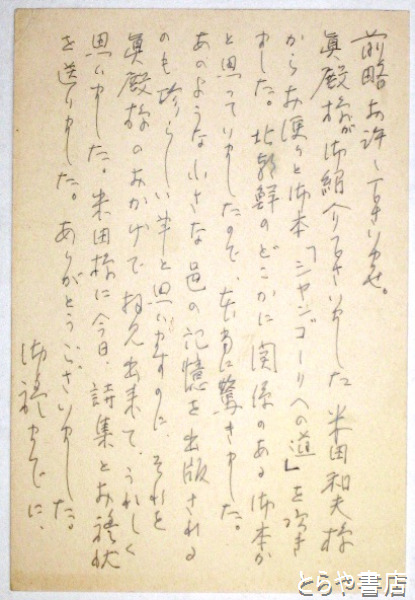 前略お許し下さいませ。
眞殿様が御紹介下さいました米田和夫様
からお便りと御本「シャンゴーリへの道」を頂き
ました。北朝鮮のどこかに関係のある御本か
と思っていましたので、本当に驚きました。
あのような小さな邑の記憶を出版される
のも珍らしい事と思いますのに、それを
眞殿様のおかげで拝見出来て、うれしく
思いました。米田様に今日、詩集とお礼状
を送りました。ありがとうございました。
御礼までに、
とらや書店